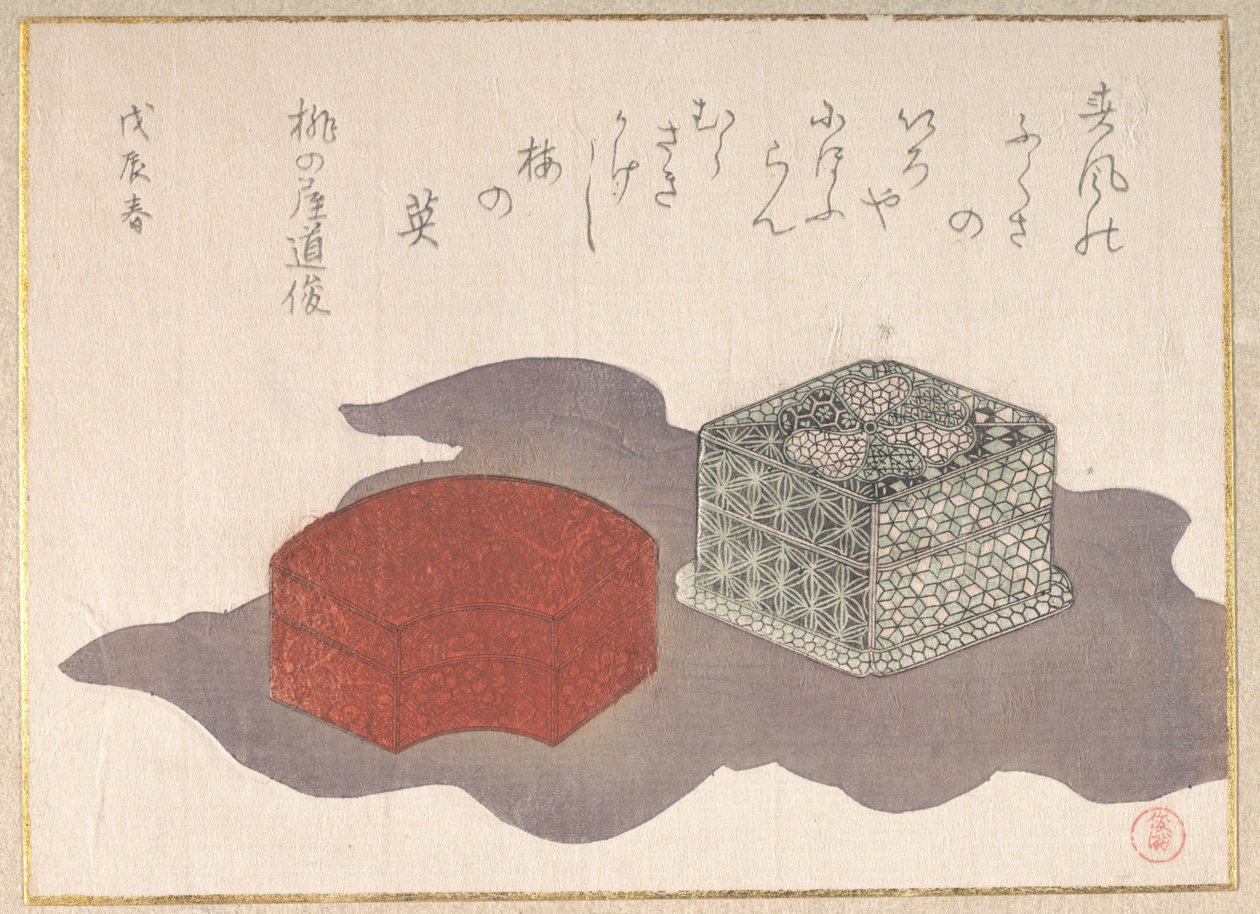 春風の
ふくさ
の
いろ
や
にほふ
らん
むら
さき
かけ
し
梅
の
英
桃の屋道俊
戊辰春